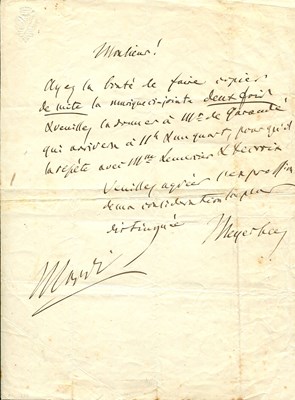 Monsieur!
Ayez la bonté de faire copier
de suite la musique ci-jointe deux fois
& veuillez la donner à Mr de Garaudé
qui arrivera à 11h & un quart, pour qu'il
la répète avec Mlle Lemercier &
Veuillez agréer l'expression
de ma considération la plus
distinguée
Meyerbeer
Mardi